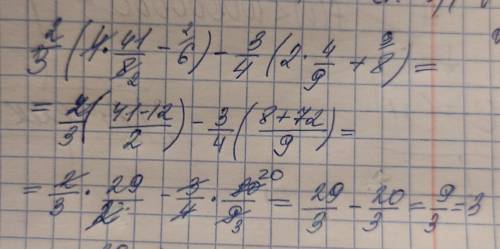 2/3 (4 · 41/8 2 − 2/6) − 3/4 (2 · 4/9 + 9/8) =
= 2/3 ((41−12)/2) − 3/4 ((8+72)/9) =
= 2/3 · 29/2 − 3/4 · 80 20/9 3 = 29/3 − 20/3 = 9/3 = 3